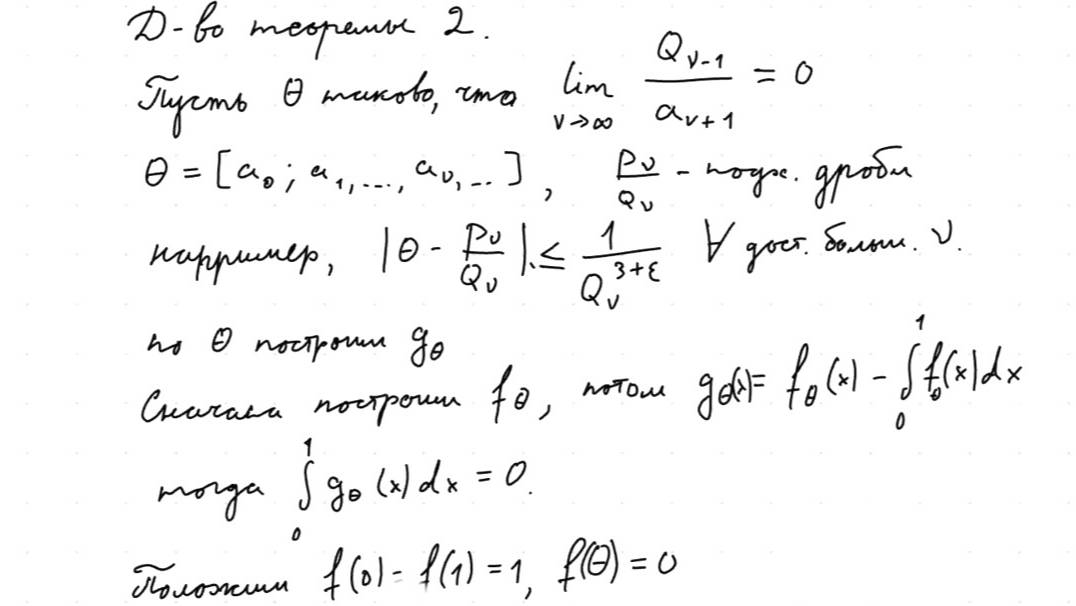 Д-во теоремы 2.
Пусть θ таково, что lim_{ν→∞} Q_{ν-1}/a_{ν+1} = 0
θ = [a₀; a₁,..., a_ν,..], P_ν/Q_ν - подх. дроби
например, |θ - P_ν/Q_ν| ≤ 1/Q_ν^{3+ε} ∀ дост. больш. ν.
по θ построим g_θ
Сначала построим f_θ, потом g_θ(x) = f_θ(x) - ∫₀¹ f_θ(x)dx
тогда ∫₀¹ g_θ(x)dx = 0.
Положим f(0) = f(1) = 1, f(θ) = 0